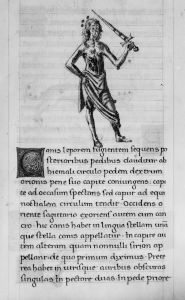 Canis leporem fugientem sequens po
sterioribus pedibus clauditur ab
hiemali circulo pedem dextrum
orionis pene suo capite coniungens: capi
te ad occasum spectans sed caput ad equi
noctialem circulum tendit Occidens o
riente sagitario exoriens autem cum can
cro: hic canis habet in lingua stellam unã
que stella canis appellatur. In capite au
tem alteram quam nonnulli sirion ap
pellant: de quo primum diximus Prete
rea habet in utrisque auribus obscuras
singulas In pectore duas In pede priore